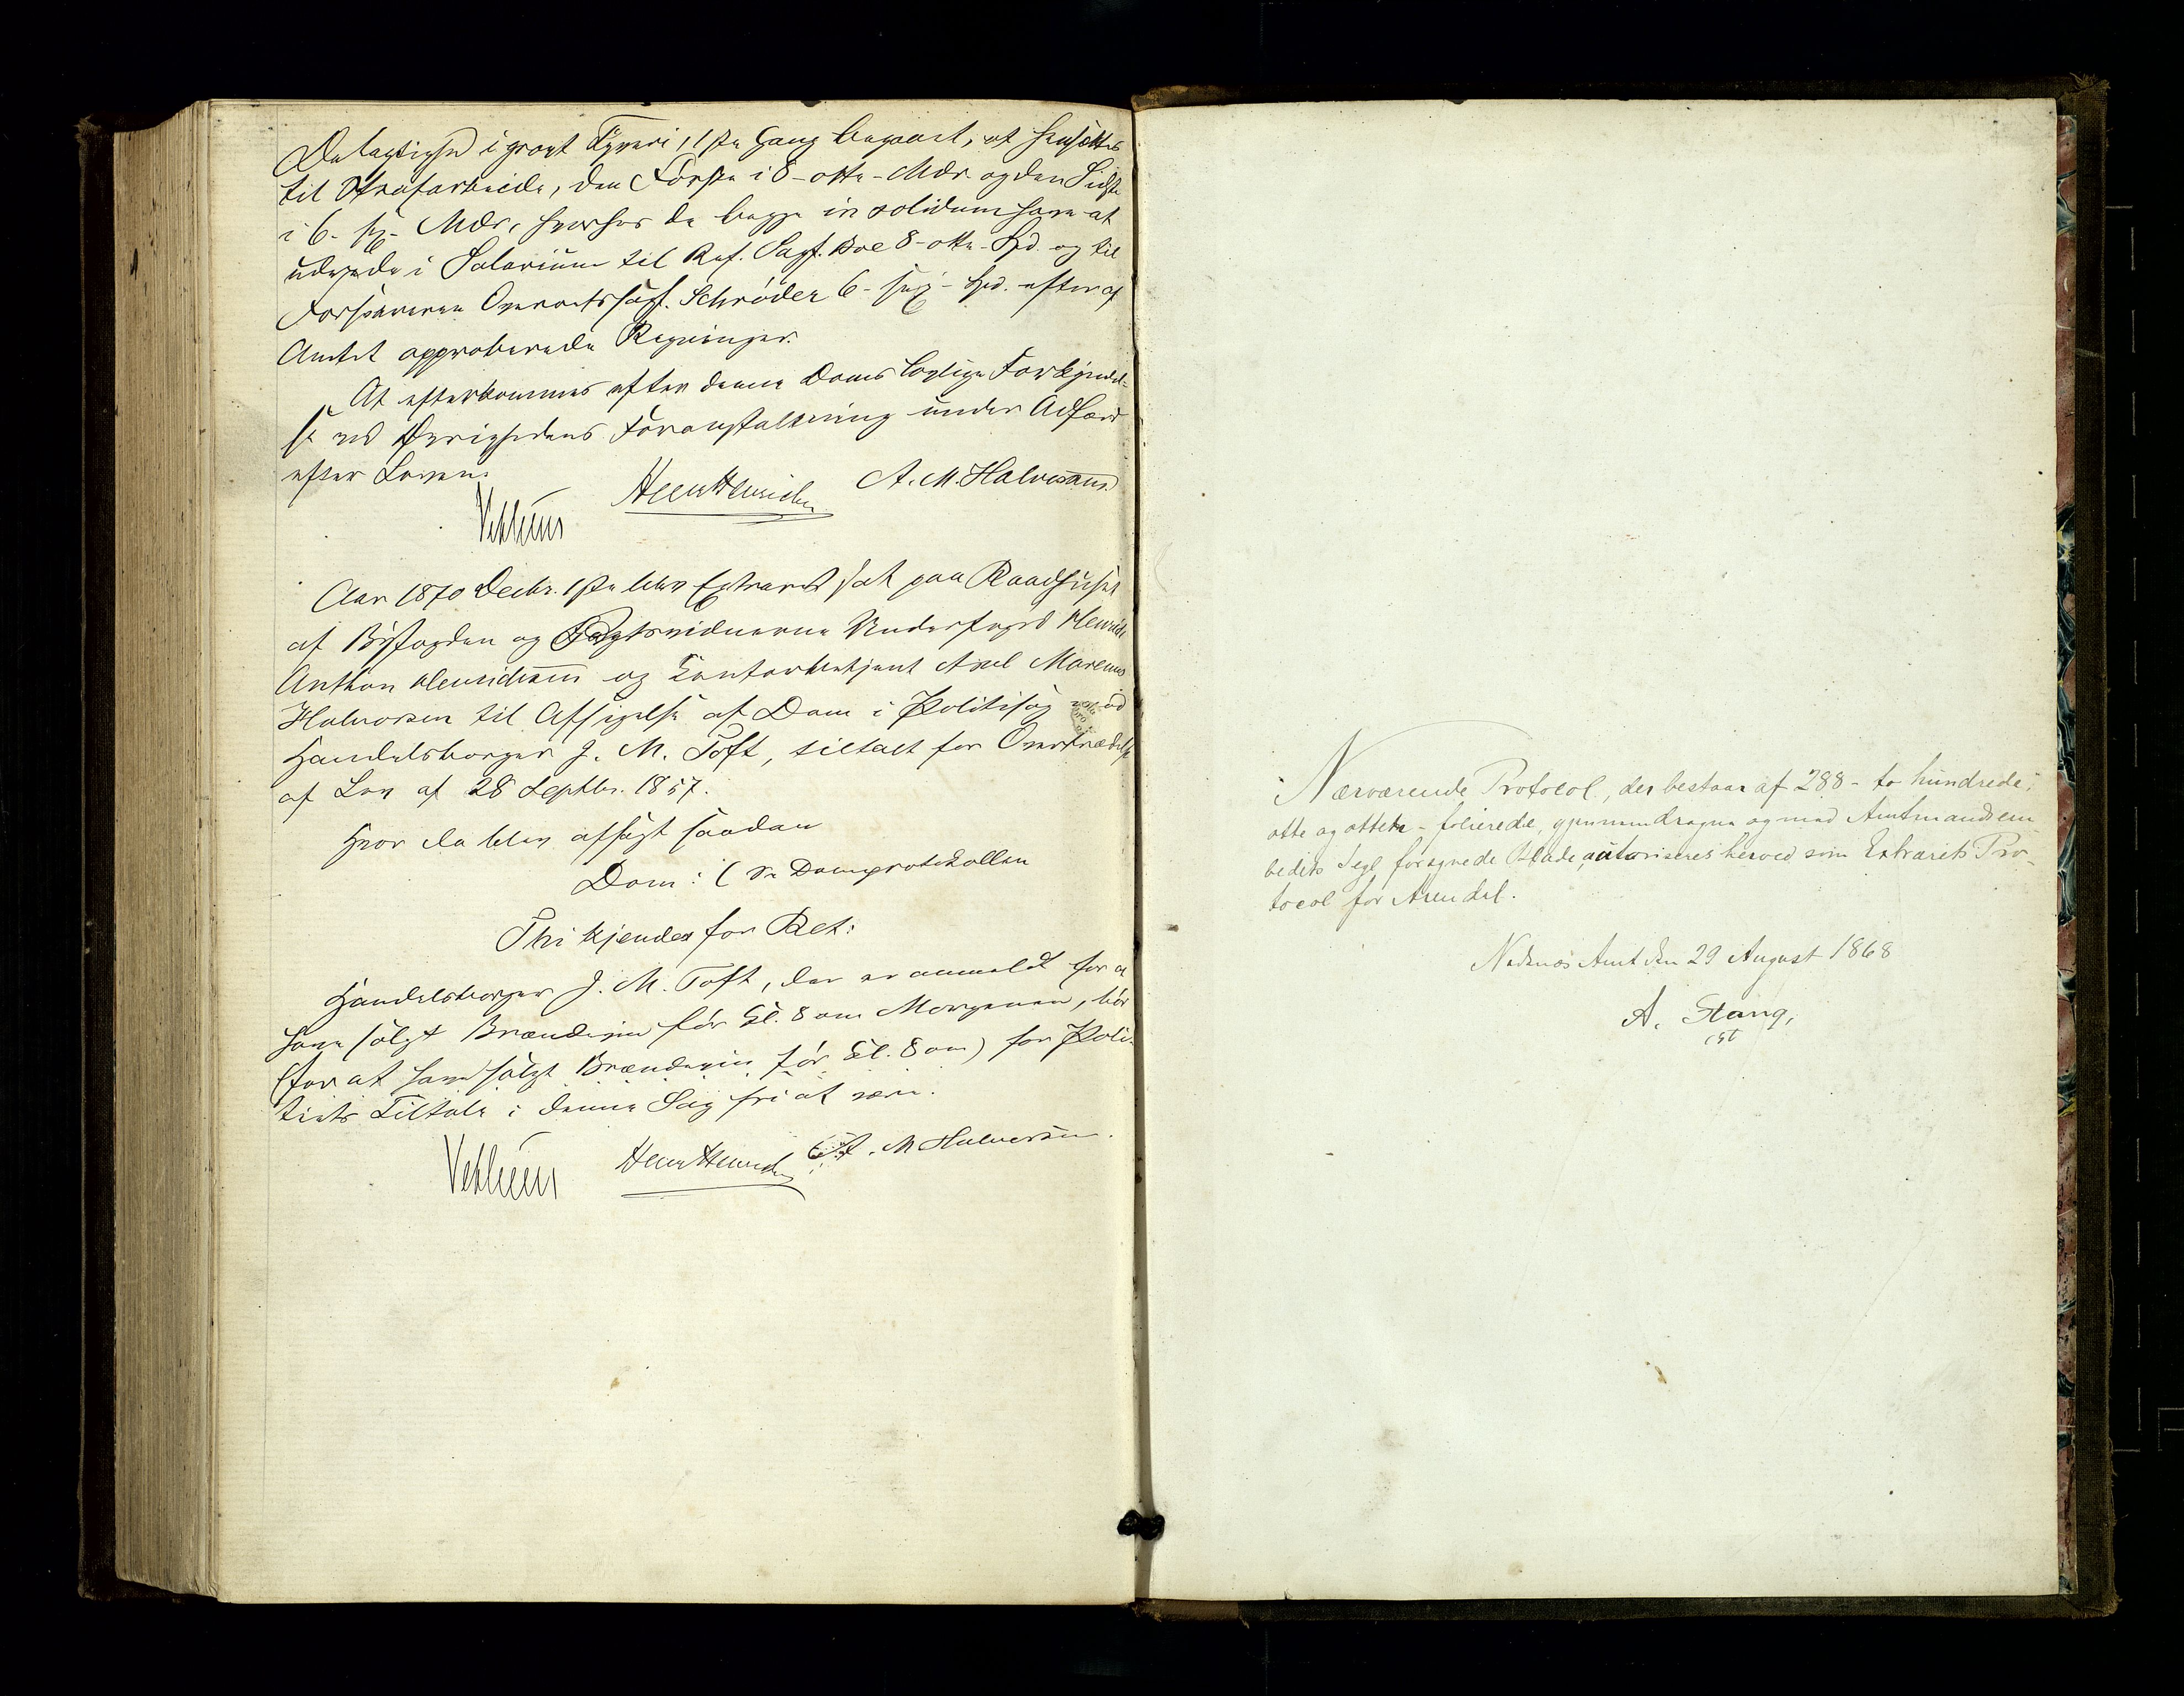 Delagtighed i grovt Tyveri, 1ste Gang begaaet, at hensættes
til Strafarbeide, den Første i 8 - otte - Mdr. og den Sidste
i 6 - sex - Mdr., hvorhos de begge in solidum have at
udrede i Salarium til Ref. Sagf. Boe 8 - otte - Spd. og til
Forsvareren Overretssagf. Schrøder 6 - sex - Spd. efter af
Amtet approberede Regninger.
At efterkommes efter denne Doms lovlige Forkyndel-
se ved Øvrighedens Foranstaltning under Adfærd
efter Loven.
A. M. Halvorsen
Aar 1870 Decbr. 1ste blev Extraret sat paa Raadhuset
af Byfogden og Retsvidnerne Underfoged Henrik
Anthon Henrichsen og Contorbetjent Axel Marenus
Halvorsen til Afsigelse af Dom i Politisag mod
Handelsborger J. M. Toft, tiltalt for Overtrædelse
af Lov af 28 Septbr. 1857.
Hvor da blev afsagt saadan
Dom: (se Domprotokollen
Thi kjendes for Ret:
Handelsborger J. M. Toft, der er anmeldt for at
have solgt Brændeviin før Kl. 8 om Morgenen, bør
(for at have solgt Brændeviin før Kl. 8 om) for Poli-
tiets Tiltale i denne Sag fri at være.
A. M Halvorsen.
Nærværende Protocol, der bestaar af 288 - to hundrede,
otte og otteti - folierede, gjennemdragne og med Amtmandsem
bedets Segl forsynede Blade, autoriseres herved som Extrarets Pro-
tocol for Arendal.
Nedenæs Amt den 29 August 1868
A. Stang,
cst